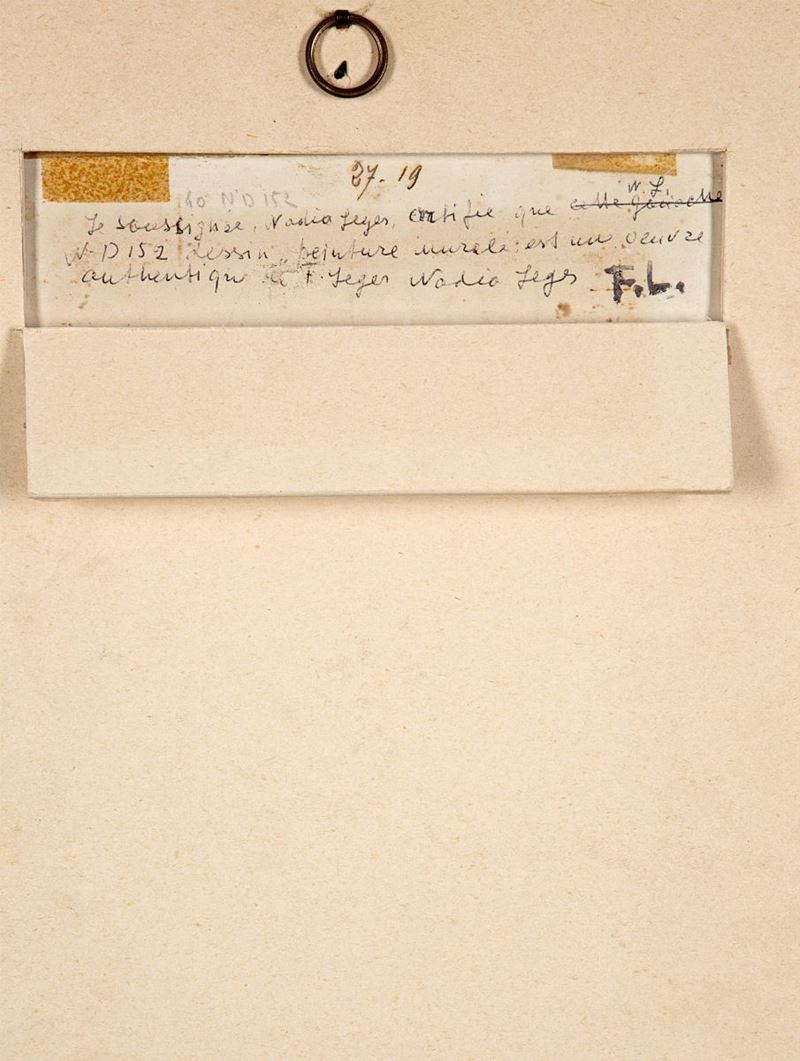 27-19
40 N°D 152
N.L.
Je soussignée, Nadia Leger, certifie que cette gouache
N°D 152 dessin "peinture murale" est un oeuvre
authentique de F. Leger Nadia Leger F.L.